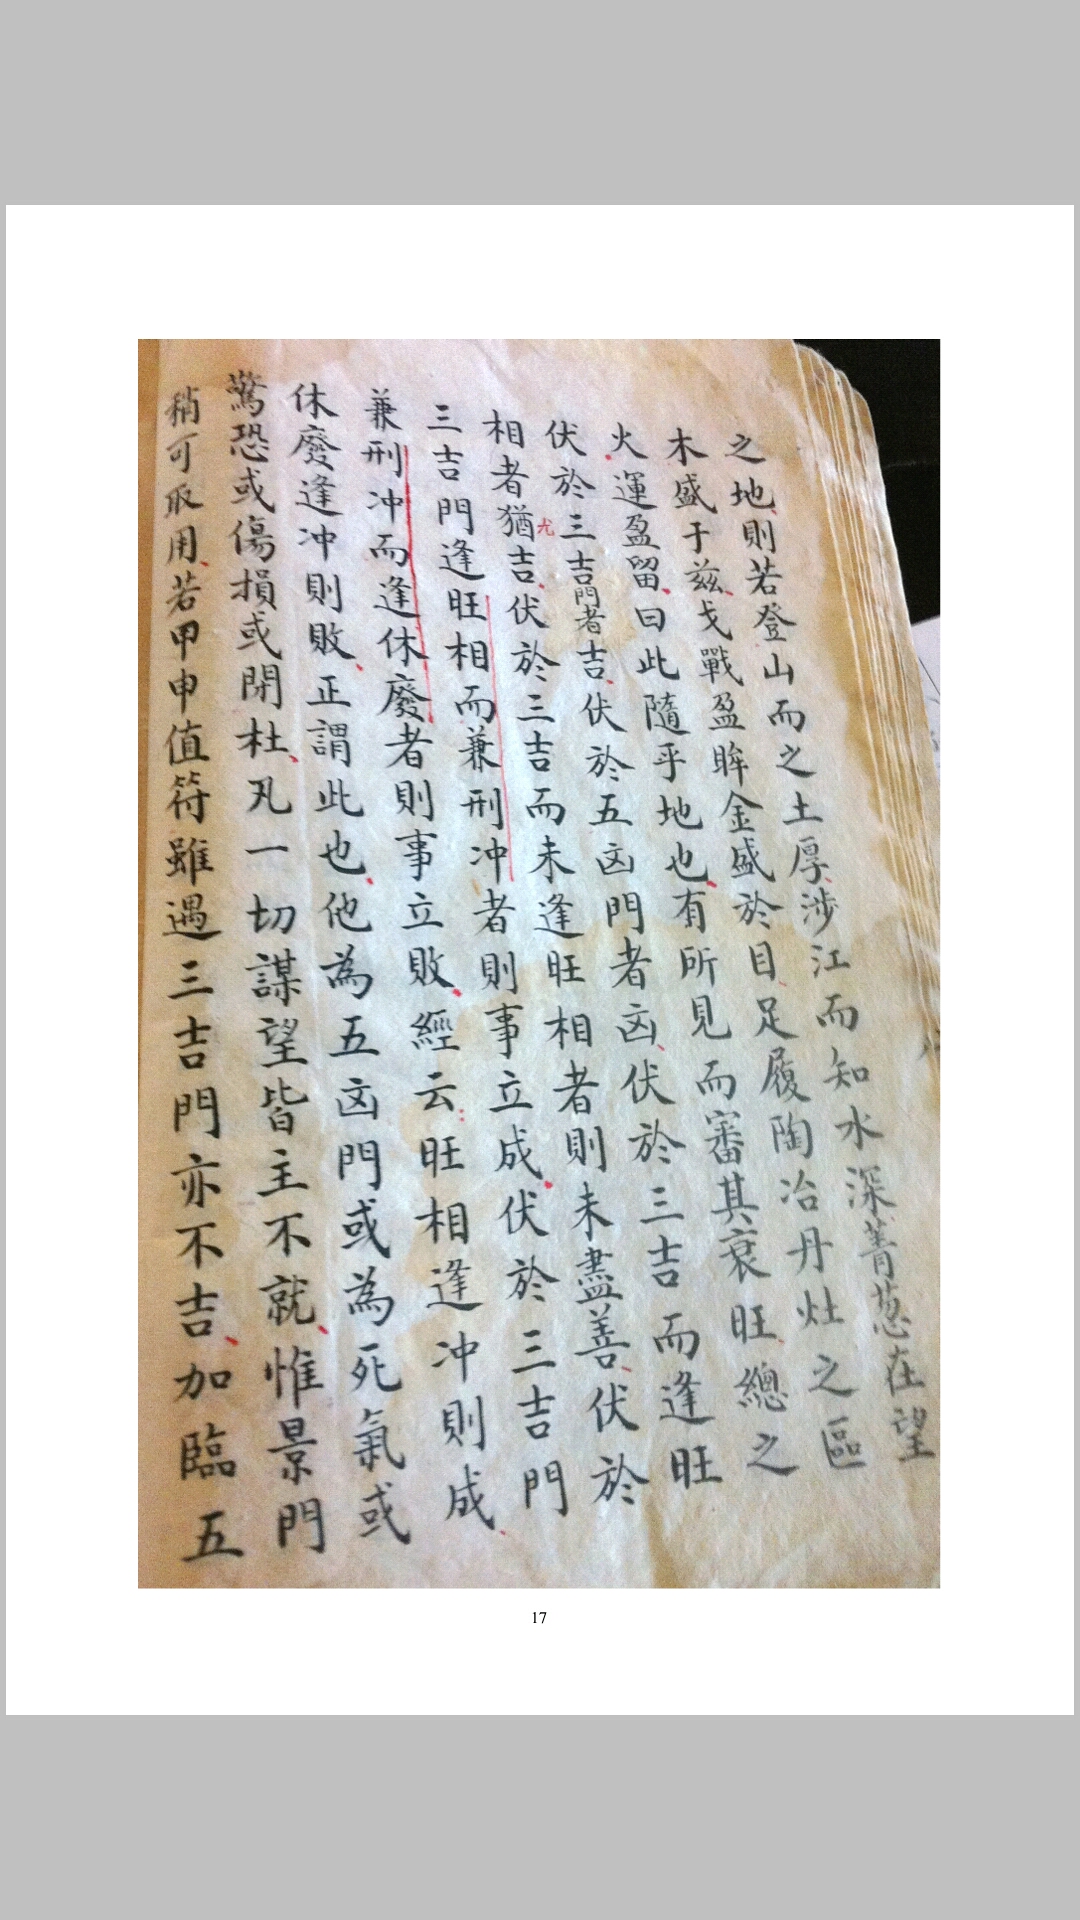 之地則若登山而之土厚涉江而知水深菁葱在望
木盛于兹戈戰盈眸金盛於目足履陶冶丹灶之區
火運盈留曰此隨乎地也有所見而審其衰旺總之
伏於三吉門者吉伏於五凶門者凶伏於三吉而逢旺
相者猶吉伏於三吉而未逢旺相者則未盡善伏於
尤
三吉門逢旺相而兼刑冲者則事立成伏於三吉門
兼刑冲而逢休廢者則事立敗經云旺相逢冲則成
休廢逢冲則敗正謂此也他為五凶門或為死氣或
驚恐或傷損或閉杜凡一切謀望皆主不就惟景門
稍可取用若甲申值符雖遇三吉門亦不吉加臨五
17